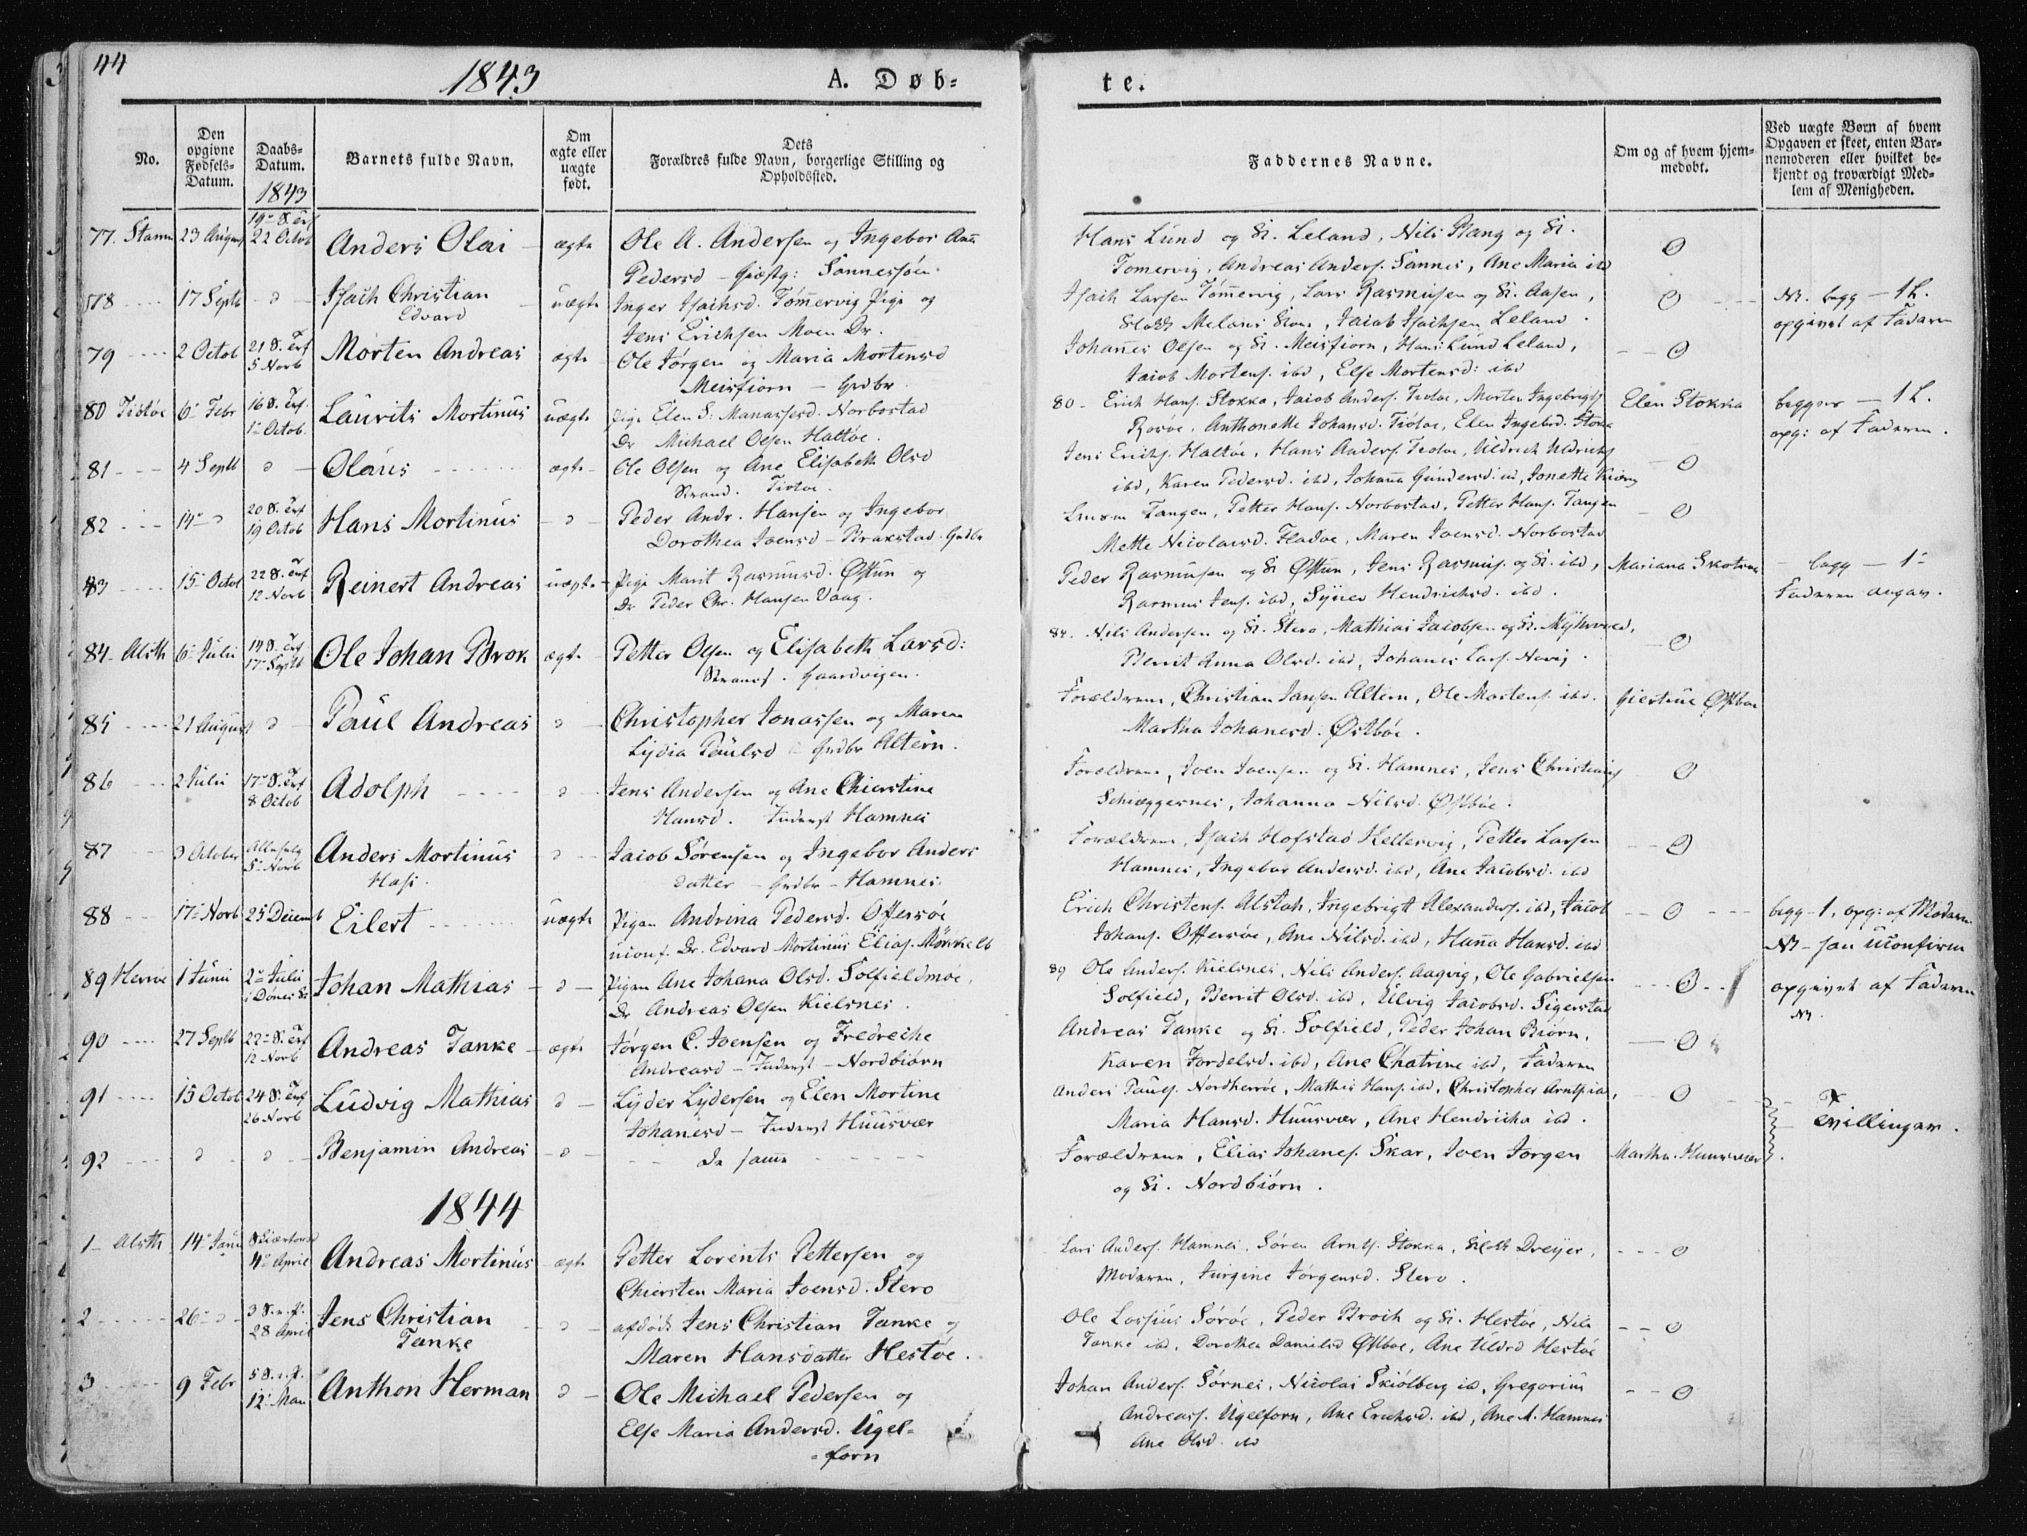 44
1843
A. Døb-
te.
No.
Den opgivne Fødsels-Datum.
Daabs-Datum.
1843
Barnets fulde Navn.
Om ægte eller uægte født.
Dets Forældres fulde Navn, borgerlige Stilling og Opholdssted.
Faddernes Navne.
Om og af hvem hjem-medøbt.
Ved uægte Børn af hvem Opgaven er skeet, enten Bar-nemoderen eller hvilket be-kjendt og troværdigt Med-lem af Menigheden.
77. Stamn 23 August 22 Octob Anders Olai - ægte Ole A. Andersen og Ingebor Ann
Pedersd - Giæstg: Sannessøen.
Hans Lund og K. Leland, Nils Stang og K.
Tomervig, Andreas Anders. Sannes, Ane Maria ibd
0
78 17 Septb - d - Isach Christian Edvard uægte Inger Isachsd. Tømmervig Pige og
Jens Erichsen Moen Dr.
Isach Larsen Tømmervig, Lars Rasmusen og K. Aasen,
Jacob Isachsen Leland.
0
begg - 1 L.
opgivet af Faderen
79 2 Octob 21 S. Trf 5 Novb Morten Andreas ægte Ole Jørgen og Maria Mortensd
Meisfiorn - Grdbr
Johannes Olsen og K. Meisfiorn, Hans Lund Leland,
Jacob Mortens. ibd, Else Mortensd: ibd
0
80 Tiøtøe 6 Febr 16 S. Trf. 1 Octob. Laurits Mortinus uægte Pige Elen S. Manassesd. Norbostad
Dr Michael Olsen Haltøe.
80 - Erich Hans. Stokka, Jacob Anders. Tiotoe, Morten Ingebrigts
Rosøe, Anthonette Johansd. Tiøtøe, Elen Ingebrd. Stokka
Elen Stokka
begges - 1 L.
opg: af Faderen.
81 4 Septb d - Olaus ægte - Ole Olsen og Ane Elisabeth Olsd
Strand. Tiotoe.
Jens Erichs. Haltøe, Hans Anders. Tiotoe, Uldrich Uldrichs
ibd, Karen Pedersd. ibd, Johanna Gundersd. ibd, Jonette
0
82 14 d 20 S. Trf 19 Octob Hans Mortinus - d - Peder Andr. Hansen og Ingebor
Dorothea Joensd - Braxstad. Grdbr
Tangen, Petter Hans. Norbostad, Petter Hans. Tangen
Mette Nicolaisd. Fladøe, Maren Joensd. Norbostad
0
83 15 Octob 22 S. Trf 12 Novb Reinert Andreas uægte - Pige Marit Rasmusd. Østun og
Dr Peder Chr. Hansen Vaag.
Peder Rasmusen og K Østun, Jens Rasmus. og K. ibd,
Rasmus Jens. ibd, Hendrichsd. ibd.
Mariana
- begg - 1
Faderen angav.
84 - Alsth 6 Julii 14 S. Trf 17 Septb Ole Johan Brok ægte Petter Olsen og Elisabeth Larsd:
Strands. Gaardvigen.
84. Nils Andersen og K. Stero, Mathias Jacobsen og K.
Berrit Anna Olsd. ibd, Johannes Lars. Novig.
0
85 21 August d - Paul Andreas d Christopher Jonassen og Maren
Lydia Paulsd Grdbr Altern.
Forældrene, Christian Jansen Altern, Ole Mortens. ibd.
Martha Johanesd. Østbøe.
Giertrue Østbøe
86 2 Julii 17 S. Trf 8 Octob Adolph d - Jens Andersen og Ane Chierstine
Hansd. Inderst Hamnes
Forældrene, Joen Joensen og K. Hamnes, Jens Christians
Schieggesnes, Johanna Nilsd. Østbøe.
0
87 3 October 5 Novb Anders Mortinus d - Jacob Sørensen og Ingebor Anders
datter - Grdbr - Hamnes
Forældrene, Isach Hofstad Kellervig, Petter Larsen
Hamnes, Ingebor Andersd. ibd, Ane Jacobsd. ibd
0
88 17 Novb 25 Decemb Eilert uægte Pigen Andrina Pedersd. Offersøe
uconf. Dr. Edvard Mortinus Elias.
Erich Christens. Alstah, Ingebrigt Alexanders. ibd, Jacob
Johans. Offersøe, Ane Nilsd. ibd, Hanna Hansd. ibd
0
begg - 1, opg: af Moderen
89 Herrøe 1 Junii 2 Julii i Dønes K. Johan Mathias d - Pigen Ane Johana Olsd. Solfieldmoe,
Dr Andreas Olsen Kielsnes.
89 Ole Anders. Kielsnes, Nils Anders. Aagvig, Ole Gabrielsen
Solfield, Berrit Olsd. ibd, Ulvig Jacobsd. Sigerstad
0
opgivet af Faderen
90 27 Septb 22 S. Trf 12 Novb Andreas Tanke - ægte Jørgen C. Joensen og Fredriche
Andreasd - Inderst - Nordbiørn
Andreas Tanke og K. Solfield, Peder Johan Biørn,
Karen Tordelsd. ibd, Ane Chatrine ibd, Faderen
0
91 15 Octob 24 S. Trf 26 Novb Ludvig Mathias d - Lyder Lydersen og Elen Mortine
Johanesd - Inderst Huusvær
Anders Pauls. Nordherrøe, Mathis Hans. ibd, Christopher
Maria Hansd. Huusvær, Ane Hendricha ibd.
0
Tvillinger.
92 d d Benjamin Andreas - d - De samme
Forældrene, Elias Johanes. Skar, Joen Jorgen
og K. Nordbiørn.
Martha Huusvær
1844
1 - Alsth 14 Janu Skiærtorsd 4 April Andreas Mortinus ægte Petter Lorents Pettersen og
Chiersten Maria Joensd. Stero
Lars Anders. Hamnes, Søren Arnts. Stokka, Dreyer,
Moderen, Jurgine Jørgensd. Stero.
0
2 26 d 28 April Jens Christian Tanke d - afdøde Jens Christian Tanke og
Maren Hansdatter Hestøe.
Ole Lossius Sørøe, Peder Broch og K. Hestøe, Nils
Tanke ibd, Dorothea Danielsd Østbøe, Ane Uldrd Hestøe
0
3 9 Febr 12 Mai Anthon Herman d - Ole Michael Pedersen og
Else Maria Andersd. Ugel-
forn
Johan Anders. Sørnes, Nicolai Skiølberg ibd, Gregorius
Andreass. Ugelforn, Ane Erichsd. ibd, Ane M. Hamnes
Ane Olsd. ibd
0